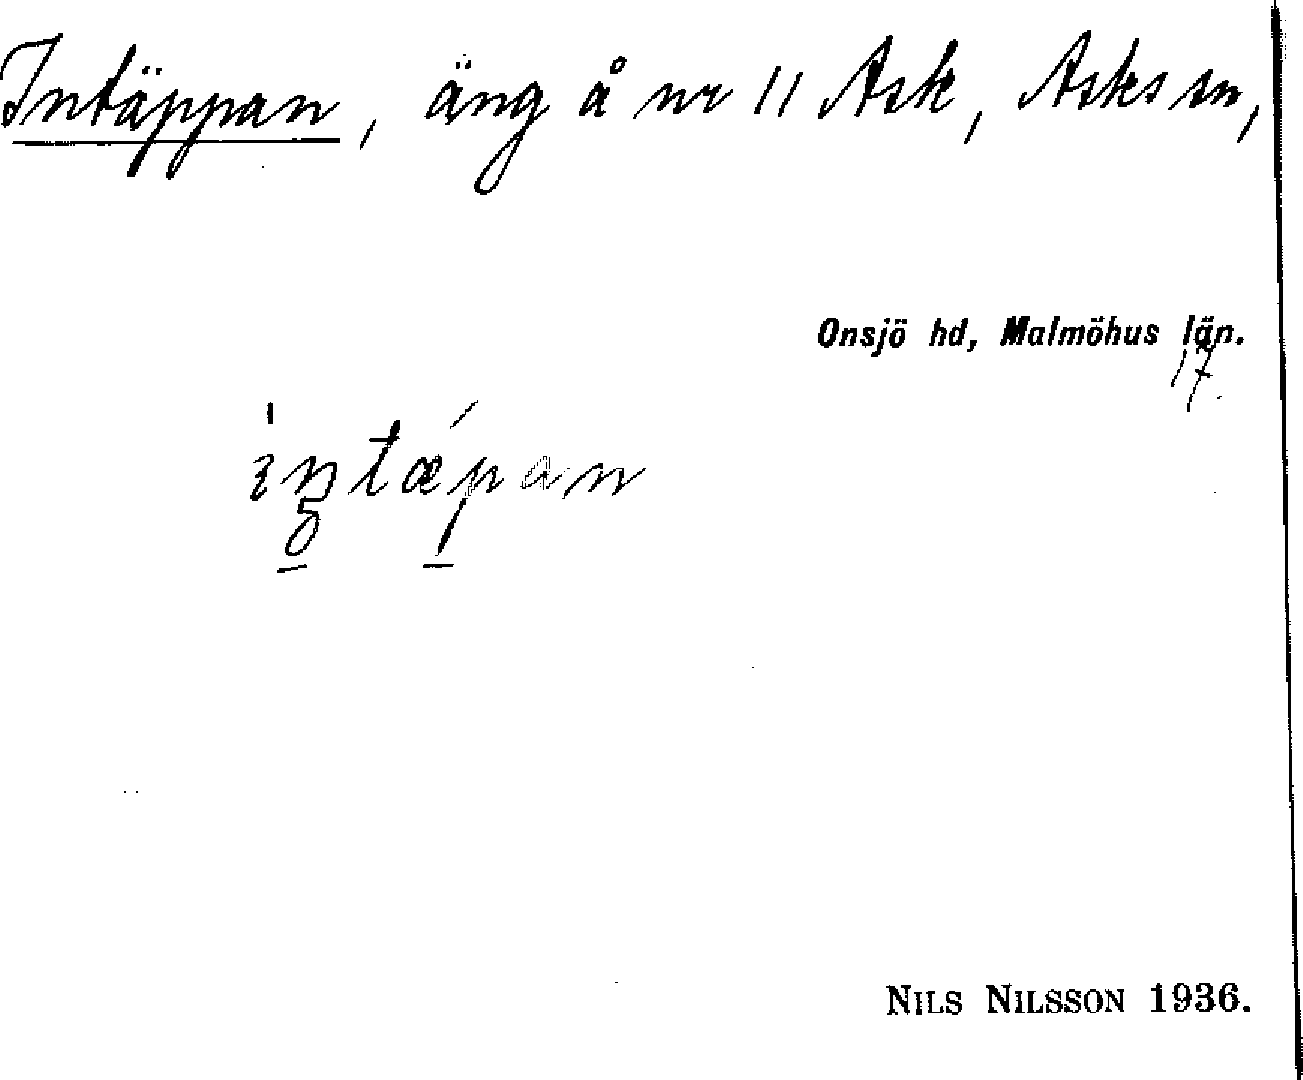 Intäppan, äng å nr 11 Ask, Asks sn,
Onsjö hd, Malmöhus län.
17.
NILS NILSSON 1936.